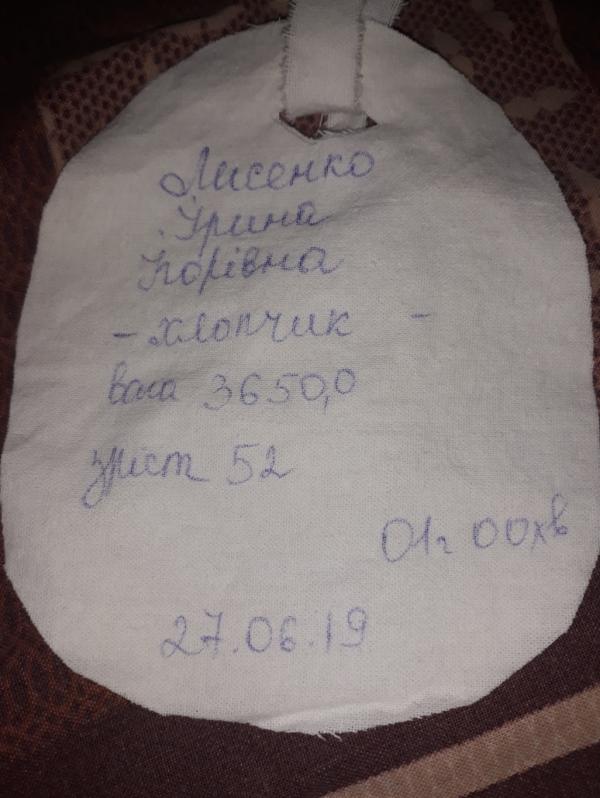 Лисенко
Ірина
Ігорівна
- хлопчик -
вага 3650,0
зріст 52
01г 00хв
27.06.19